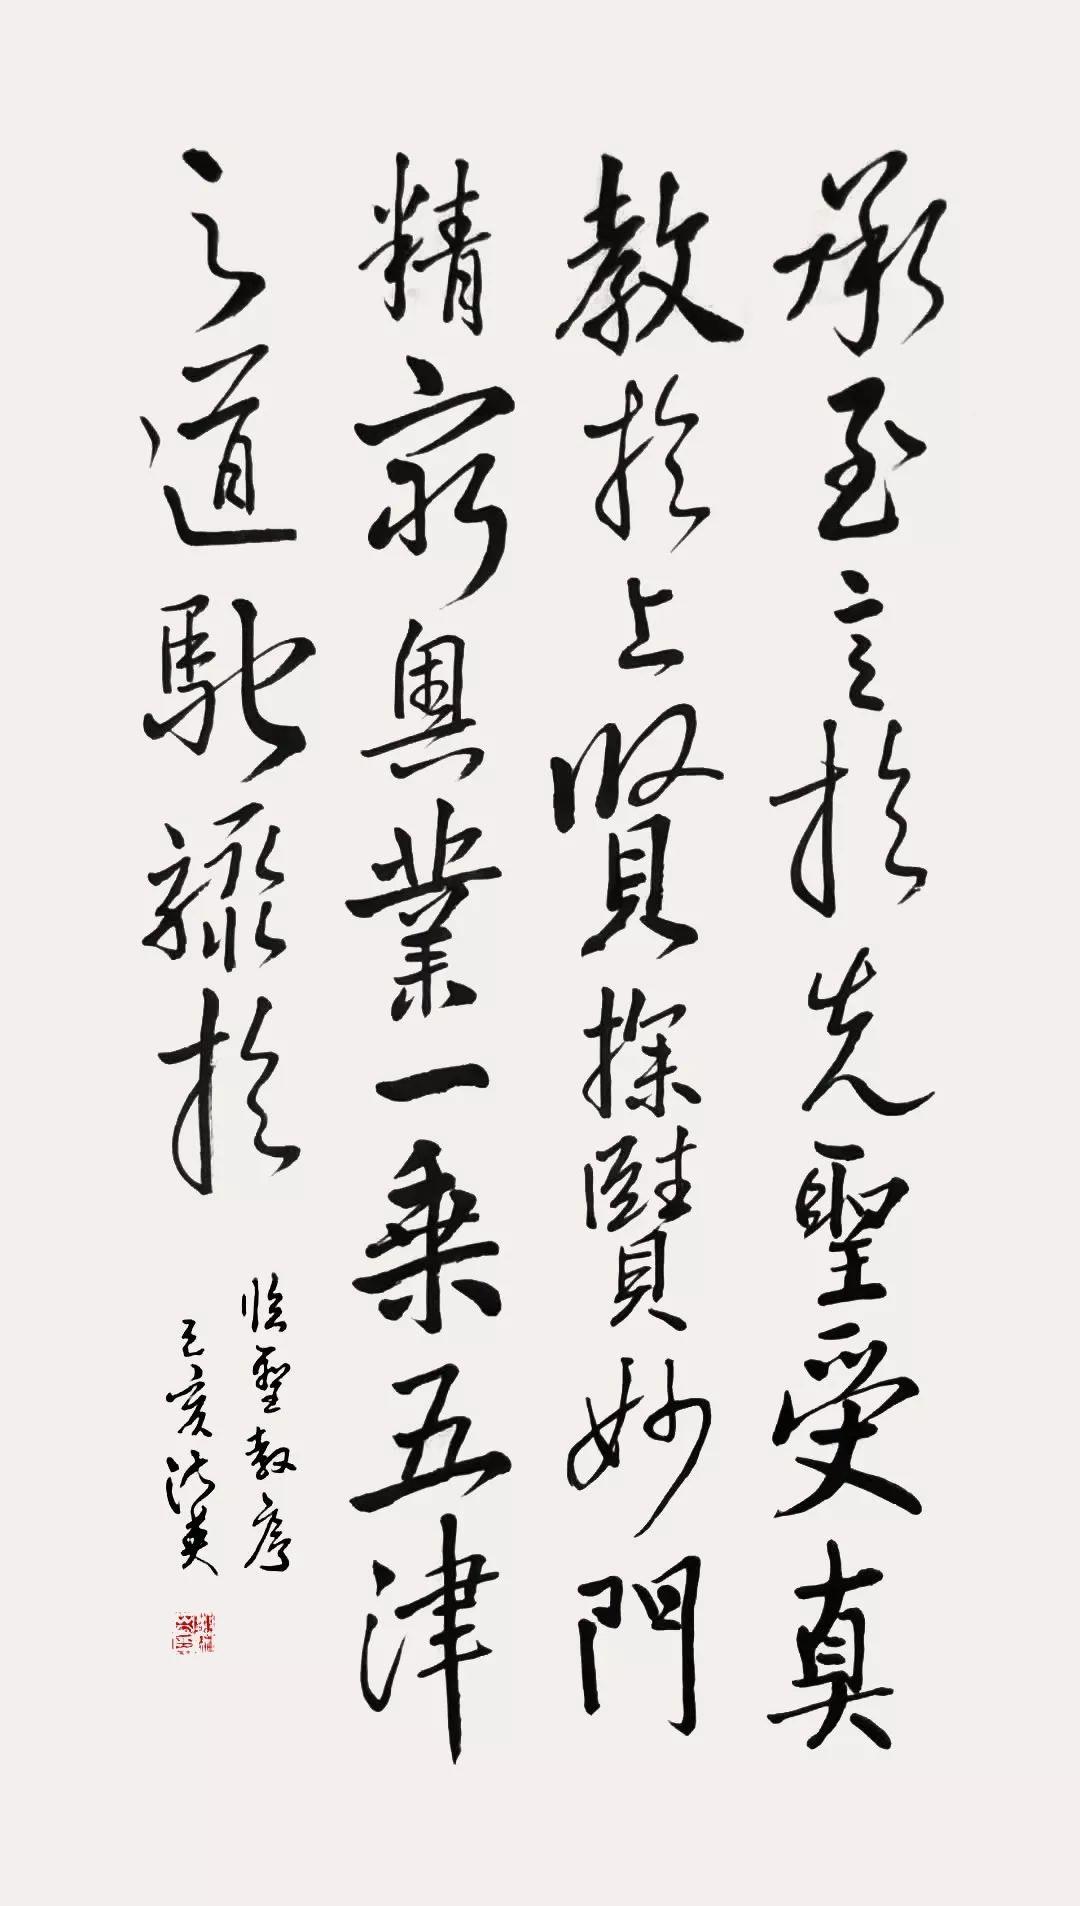 承至言於先聖受真
教於上賢探賾妙門
精窮奧業一乘五津
之道馳驟於
臨聖教序
己亥洪英